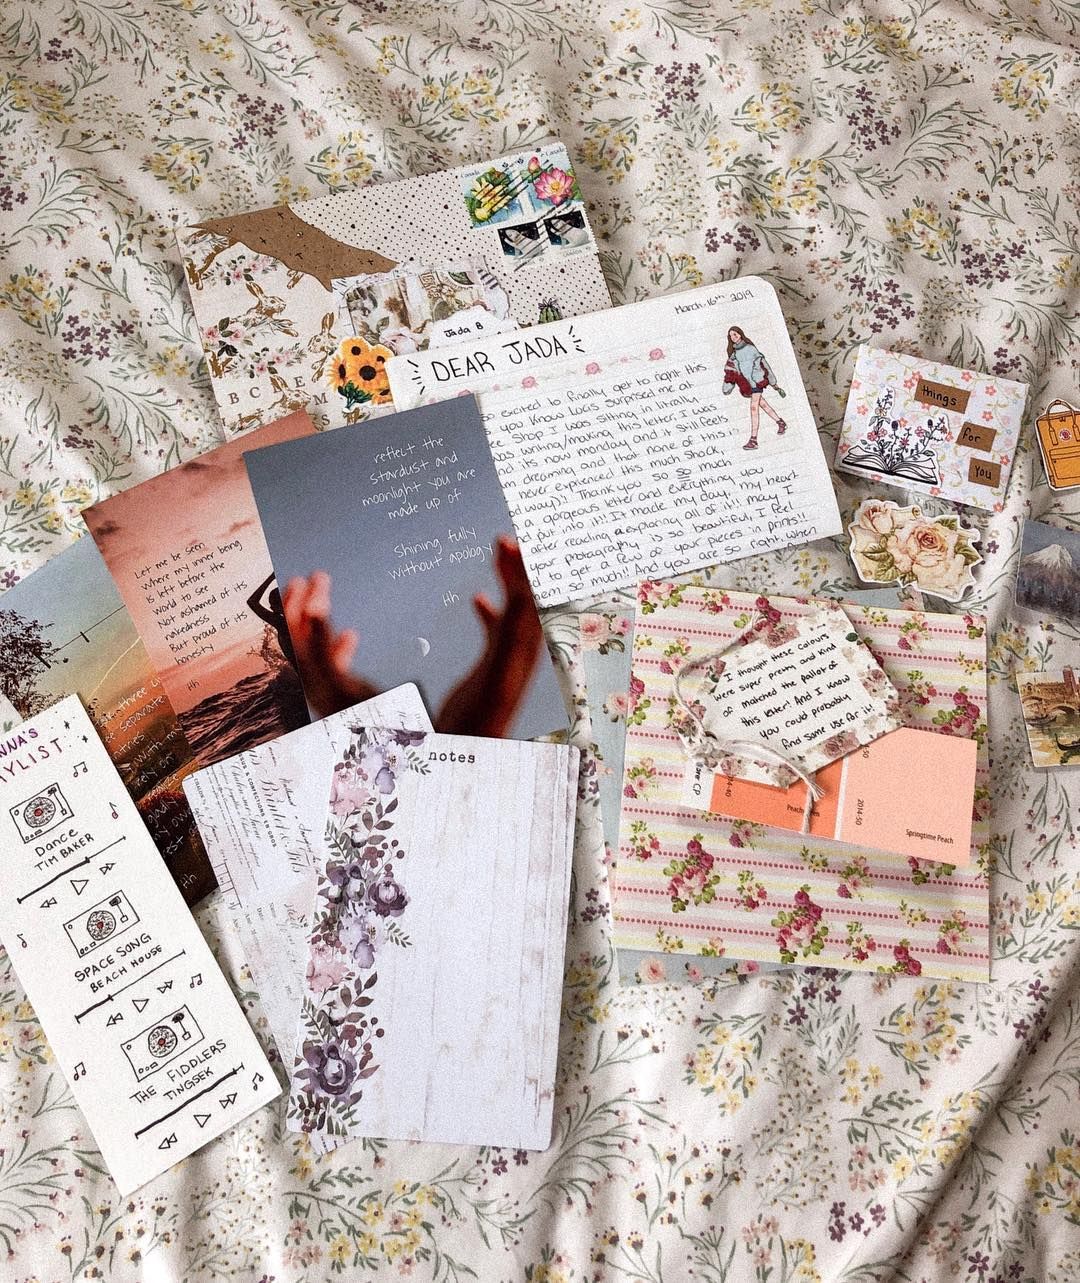 Canada
Canada
Jada B
B C E M
March 16th 2019
DEAR JADA
so excited to finally get to right this
you know Lucas surprised me at
Shop I was sitting in literally
was writing/making this letter. I was
nd its now monday and it still feels
m dreaming and that none of this
never expienced this much shock,
od way)!! Thank you so so much
a gorgeous letter and everything you
nd put into it!! It made my day, my heart
after reading & exploring all of it!! may I
your photagraphy is so beautiful, I feel
d to get a few of your pieces in prints!!
hem so much!! And you are so right, when
things
for
you
reflect the
stardust and
moonlight you are
made up of
Shining fully
without apology
Hh
Let me be seen
Where my inner being
Is left before the
world to see
Not ashamed of its
nakedness
But proud of its
honesty
Hh
three
separate
with my
Hh
NNA'S
YLIST:
Dance
TIM BAKER
SPACE SONG
BEACH HOUSE
THE FIDDLERS
TINGSEK
notes
I thought these colours
were super pretty and kind
of matched the pallet of
this letter! And I know
you could probably
find some use for it!
2014-40
Peach
2014-50
Springtime Peach